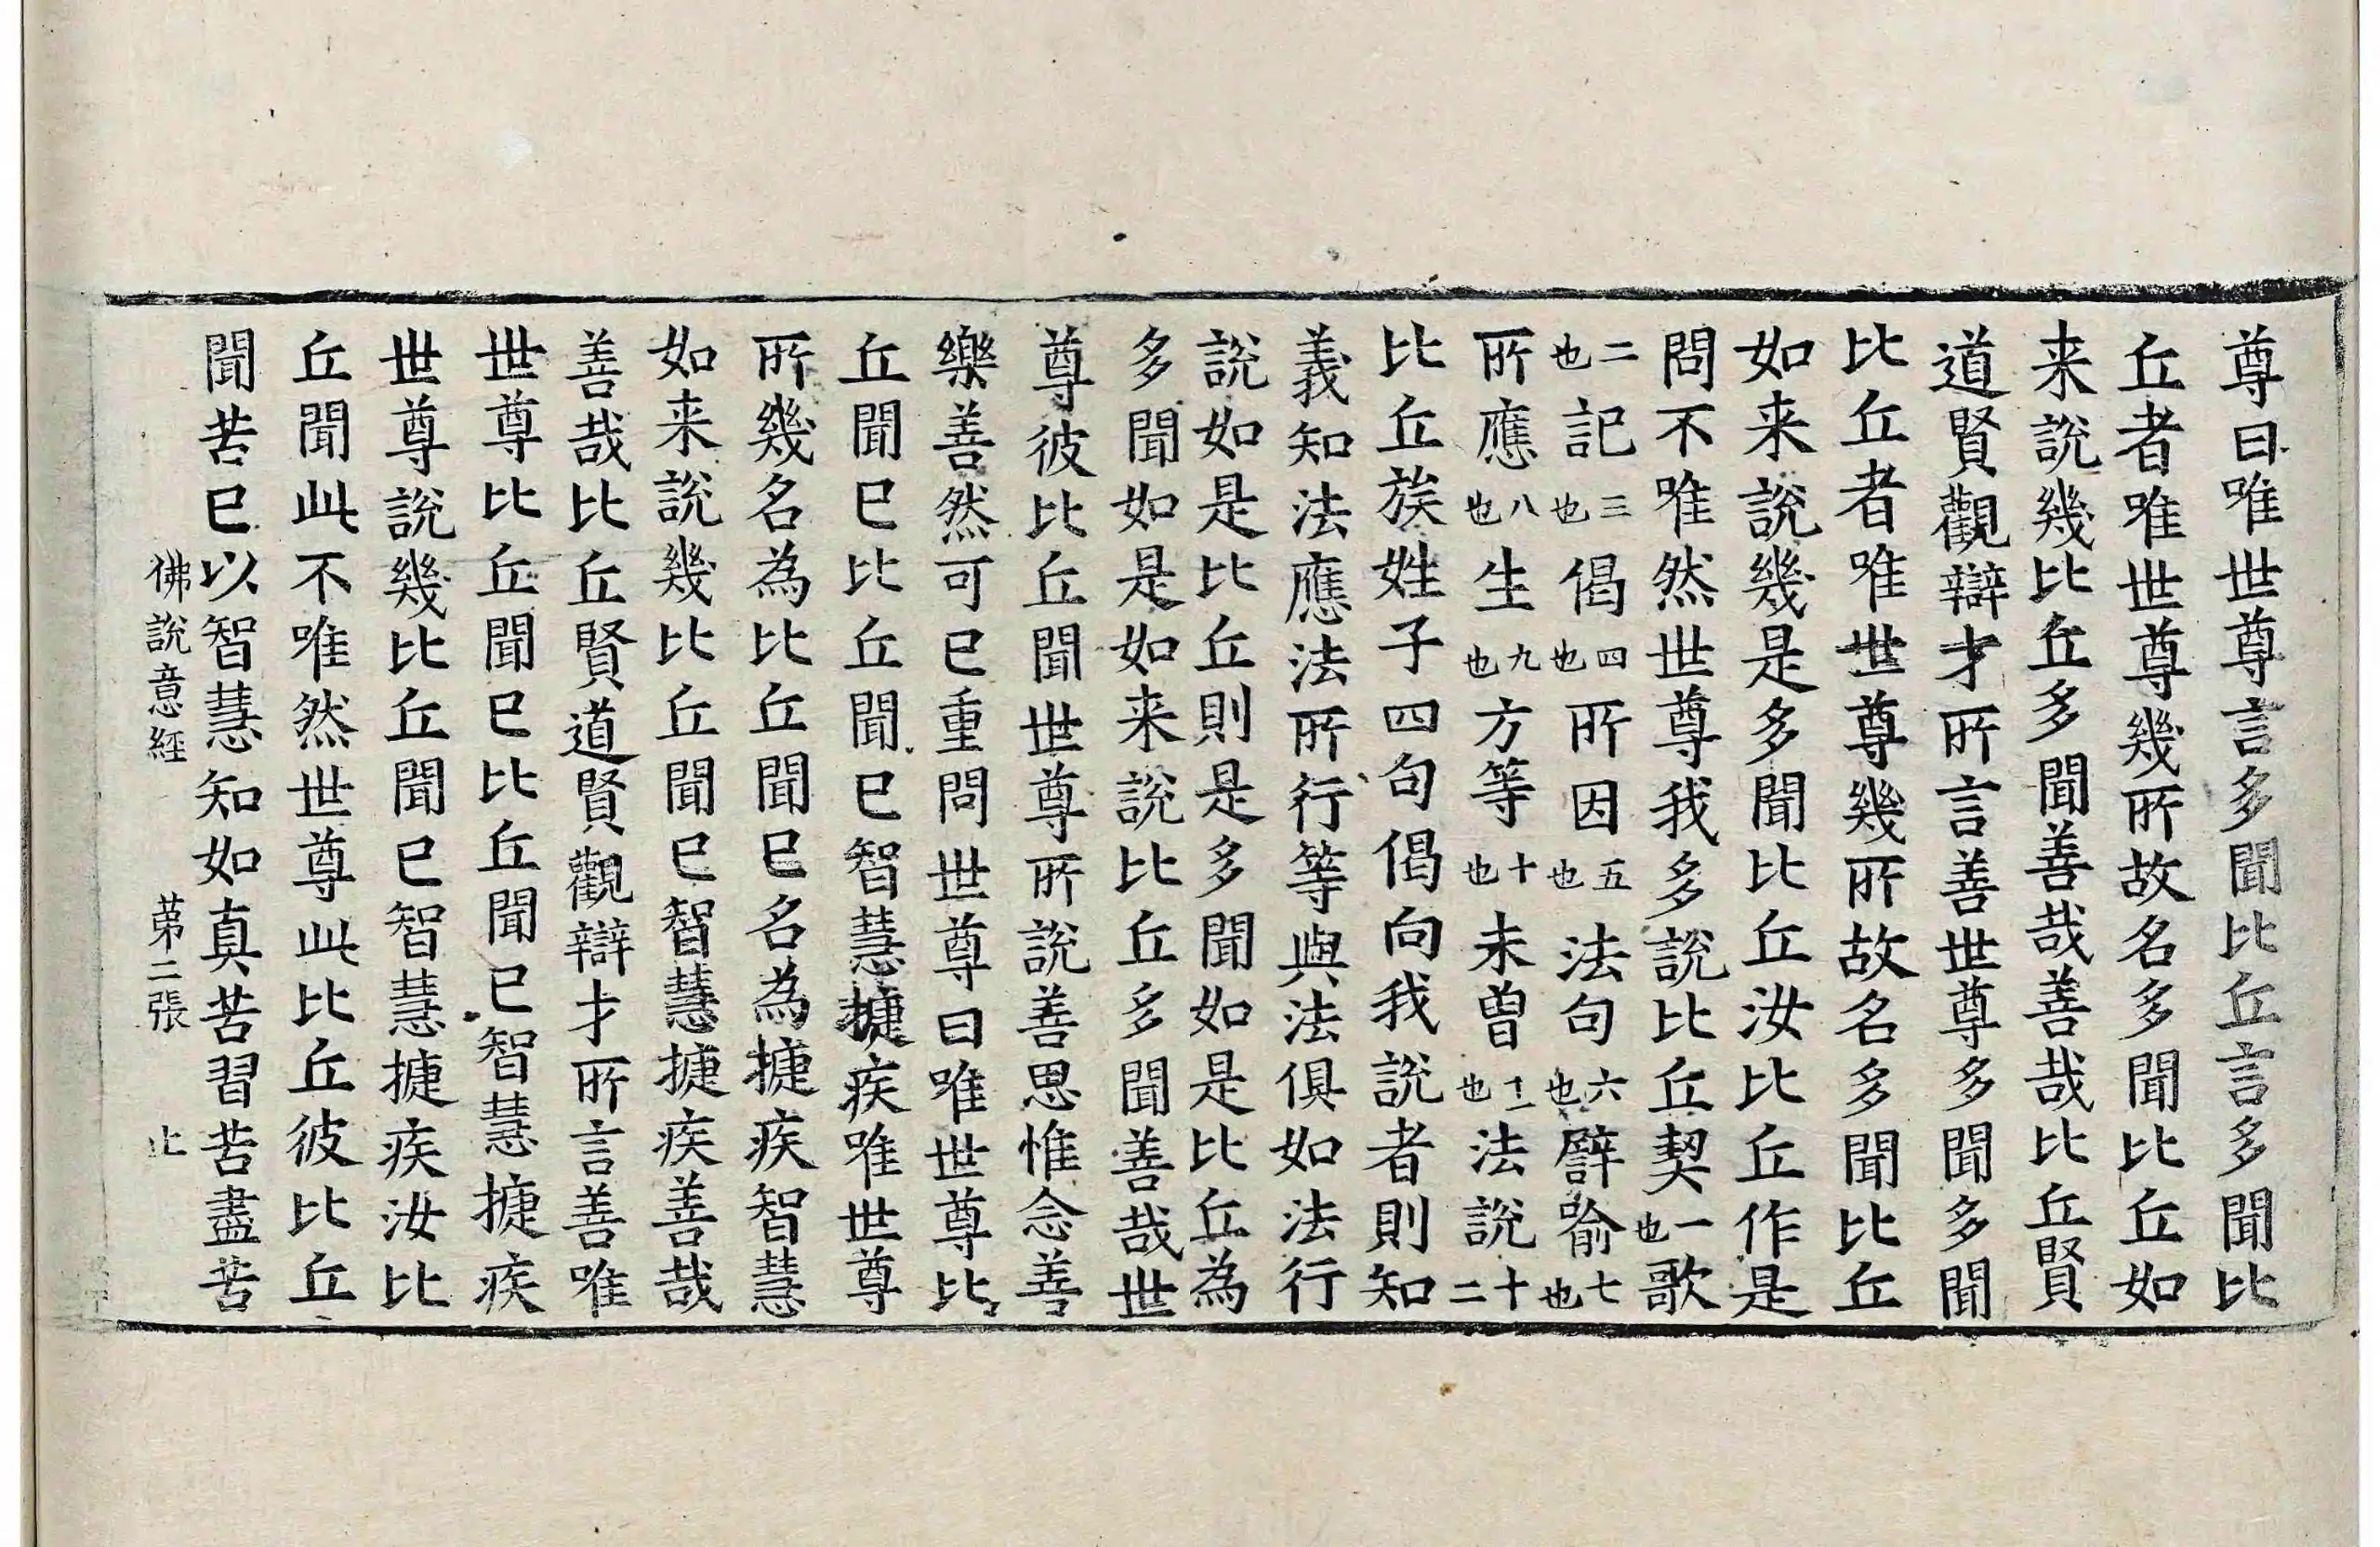 尊曰唯世尊言多聞比丘言多聞比
丘者唯世尊幾所故名多聞比丘如
来說幾比丘多聞善哉善哉比丘賢
道賢觀辯才所言善世尊多聞多聞
比丘者唯世尊幾所故名多聞比丘
如来說幾是多聞比丘汝比丘作是
問不唯然世尊我多說比丘契一也歌
二也記三也偈四也所因五也法句六也譬喻七也
所應八也生九也方等十也未曾十一也法說十二
比丘族姓子四句偈向我說者則知
義知法應法所行等與法俱如法行
說如是比丘則是多聞如是比丘為
多聞如是如来說比丘多聞善哉世
尊彼比丘聞世尊所說善思惟念善
樂善然可已重問世尊曰唯世尊比
丘聞已比丘聞已智慧揵疾唯世尊
所幾名為比丘聞已名為揵疾智慧
如来說幾比丘聞已智慧揵疾善哉
善哉比丘賢道賢觀辯才所言善唯
世尊比丘聞已比丘聞已智慧揵疾
世尊說幾比丘聞已智慧揵疾汝比
丘聞此不唯然世尊此比丘彼比丘
聞苦已以智慧知如真苦習苦盡苦
佛說意經 苐二張 止